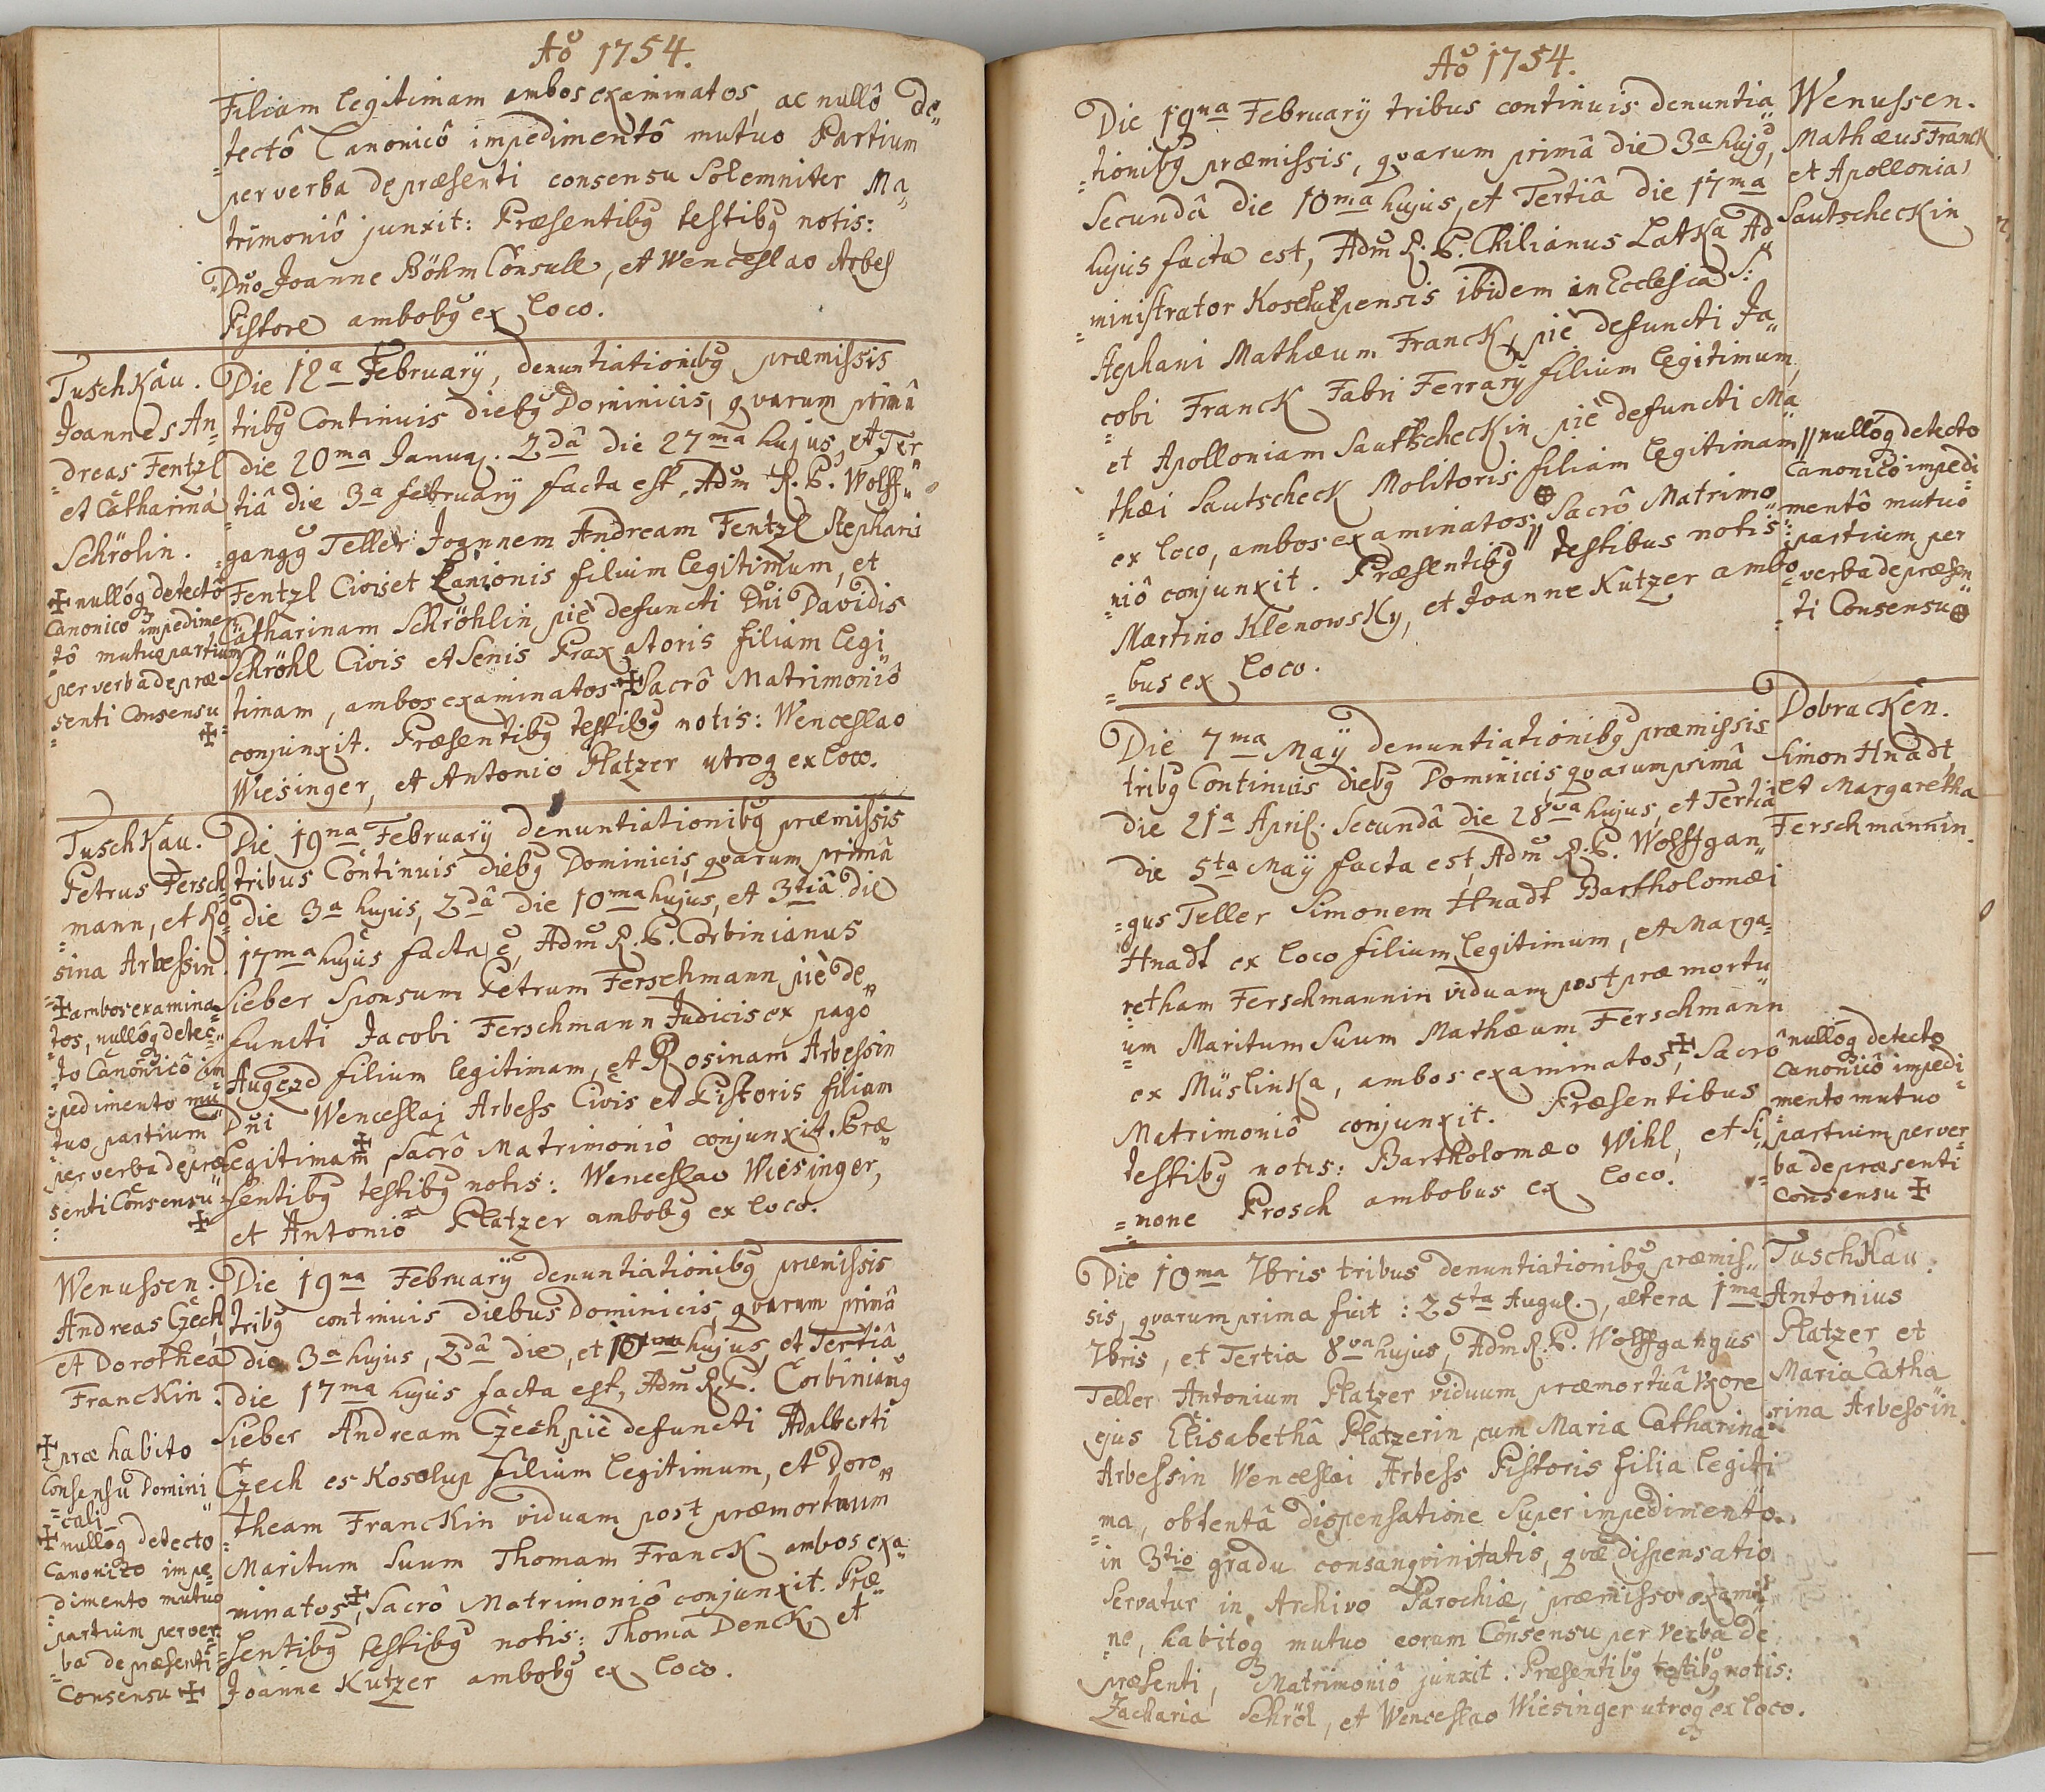 Aõ 1754.
Filiam legitimam ambos examinatos, ac nullô de„
=tectô Canonicô impedimentô mutuo Partium
per verba de præsenti consensu Solemniter Ma„
trimoniô junxit: Præsentibꝫ testibꝫ notis:
Dño Joanne Böhm Consule, et Wenceslao Arbeſ
Pistore ambobꝫ ex loco.
Tuschkau.
Joannes An=
=dreas Fentzl
et Catharina
Schrölin.
✠ nulloqꝫ detectô
Canonico impedimen
tô mutuo partium
per verba de præ
senti Consensu
✠
Die 12a February, denuntiationibꝫ præmissis
tribꝫ Continuis diebꝫ Dominicis, qvarum primâ
die 20ma Januar. 2dâ die 27ma hujus, et Ter„
tiâ die 3a february facta est, Adm̃ R. P. Wolff„
=gangꝫ Teller Joannem Andream Fentzl Stephani
Fentzl Civis et Lanionis filium legitimum, et
Catharinam Schröhlin, piè defuncti Dñi Davidis
Schröhl Civis et Senis Praxatoris filiam legi„
timam, ambos examinatos ✠, Sacrô Matrimoniô
conjunxit. Præsentibꝫ testibꝫ notis: Wenceslao
Wiesinger, et Antonio Platzer utroqꝫ ex loco.
Tuschkau.
Petrus Fersch
=mann, et Ro=
sina Arbessin.
✠ ambos examina=
=tos, nulloqꝫ detec=
to Canonicô im
=pedimento mu
tuo partium
per verba de præ
senti Consensu
✠
Die 19na February denuntiationibꝫ præmissis
tribus Continuis diebꝫ Dominicis, qvarum primâ
die 3a hujus, 2dâ die 10ma hujus, et 3tiâ die
17ma hujus facta ẽ, Adm̃ R. P. Corbinianus
Sieber Sponsum Petrum Ferschmann, piè de„
functi Jacobi Ferschmann Judicis ex pago
Augezd filium legitimam, et Rosinam Arbessin
Dñi Wenceslai Arbess Civis et Pistoris filiam
legitimam ✠, Sacrô Matrimoniô conjunxit. Præ„
=sentibꝫ testibꝫ notis: Wenceslao Wiesinger,
et Antonio Platzer ambobꝫ ex loco.
Wenussen.
Andreas Czech,
et Dorothea
Franckin.
✠ præ habito
Consensu Domini
=cali
✠ nulloqꝫ detecto
Canonico impe
dimento mutuo
partium per ver
=ba de præsenti
Consensu ✠
Die 19na February denuntiationibꝫ præmissis
tribꝫ continuis diebus Dominicis, qvarum primâ
die 3a hujus, 2dâ die, et 10ma hujus, et Tertiâ
die 17ma hujus facta est, Adm̃ R. P. Corbinianꝫ
Sieber Andream Czech, piè defuncti Adalberti
Czech es Kosolup filium legitimum, et Doro„
=theam Franckin viduam post præmortuum
Maritum Suum Thomam Franck ambos exa=
minatos ✠, Sacrô Matrimoniô conjunxit. Præ„
=sentibꝫ testibꝫ notis: Thoma Denck, et
Joanne Kutzer ambobꝫ ex loco.
Aõ 1754.
Die 19na February tribus continuis denuntia„
=tionibꝫ præmissis, qvarum primâ die 3a hujꝫ,
Secundâ die 10ma hujus, et Tertiâ die 17ma
hujus facta est, Adm̃ R. P. Chilianus Latka Ad„
=ministrator Koselupensis ibidem in Ecclesia S:
Stephani Mathæum Franck, piè defuncti Ja„
=cobi Franck Fabri Ferrary filium legitimum,
et Apolloniam Sautscheckin, piè defuncti Ma„
=thæi Sautscheck Molitoris filiam legitimam
ex loco, ambos examinatos, // Sacrô Matrimo„
=niô conjunxit. Præsentibꝫ testibus notis:
Martino Klenowsky, et Joanne Kutzer ambo
=bus ex loco.
Wenussen.
Mathæus Franck
et Apollonia
Sautscheckin
// nulloqꝫ detecto
Canonicô impedi
mentô mutuo
partium per
verba de præsen
=ti Consensu
Die 7ma May denuntiationibꝫ præmissis
tribꝫ Continuis diebꝫ Dominicis, qvarum primâ
die 21a April. Secundâ die 28va hujus, et Tertiâ
die 5ta May facta est, Adm̃ R. P. Wolffgan„
=gus Teller Simonem Hnadt Bartholomæi
Hnadt ex loco filium legitimum, et Marga=
retham Ferschmannin viduam post præmortu„
=um Maritum Suum Mathæum Ferschmann
ex Müslinka, ambos examinatos, ✠ Sacrô
Matrimoniô conjunxit. Præsentibus
testibꝫ notis: Bartholomæo Wihl, et Si„
=none Prosch ambobus ex loco.
Dobracken.
Simon Hnadt,
et Margaretha
Ferschmannin.
nulloqꝫ detecto
Canonicô impedi
mento mutuo
=partium per ver=
ba de præsenti
Consensu ✠
Die 10ma 7bris tribus denuntiationibꝫ præmis„
sis, qvarum prima fuit: 25ta August., altera 1ma
7bris, et Tertia 8va hujus, Adm̃ R. P. Wolffgangus
Teller Antonium Platzer viduum præmortuâ Vxore
ejus Elisabethâ Platzerin, cum Maria Catharina
Arbessin Wenceslai Arbess Pistoris filia legiti
=ma, obtentâ dispensatione Super impedimento
in 3tio gradu consangvinitatis, qvæ dispensatio
Servatur in Archivo Parochiæ, præmisso exami
=ne, habitoqꝫ mutuo eorum Consensu per Verba de
præsenti, Matrimoniô junxit. Præsentibꝫ testibꝫ notis:
Zacharia Schröl, et Wenceslao Wiesinger utroqꝫ ex loco.
Tuschkau.
Antonius
Platzer, et
Maria Catha
=rina Arbessin.